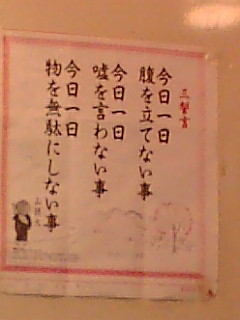 三誓言
今日一日
腹を立てない事
今日一日
嘘を言わない事
今日一日
物を無駄にしない事